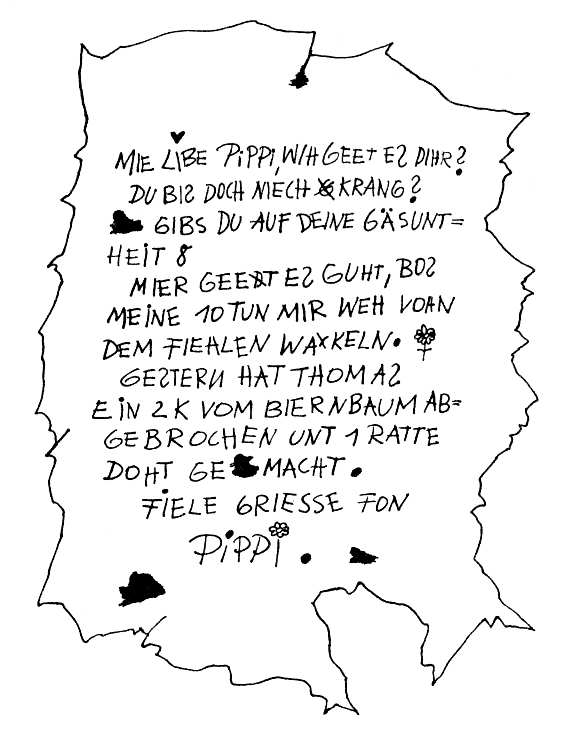 MIE LIBE PIPPI, WIH GEET ES DIHR?
DU BIS DOCH NIECH KRANG?
GIBS DU AUF DEINE GÄSUNT=
HEIT 8
MIER GEET ES GUHT, BOS
MEINE 10 TUN MIR WEH VOAN
DEM FIEHLEN WAXKELN.
GESTERN HAT THOMAS
EIN 2K VOM BIERNBAUM AB=
GEBROCHEN UNT 1 RATTE
DOHT GEMACHT.
FIELE GRIESSE FON
PIPPI.